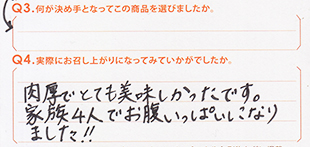 Q3.何が決め手となってこの商品を選びましたか。
Q4.実際にお召し上がりになってみていかがでしたか。
肉厚でとても美味しかったです。
家族4人でお腹いっぱいになり
ました!!